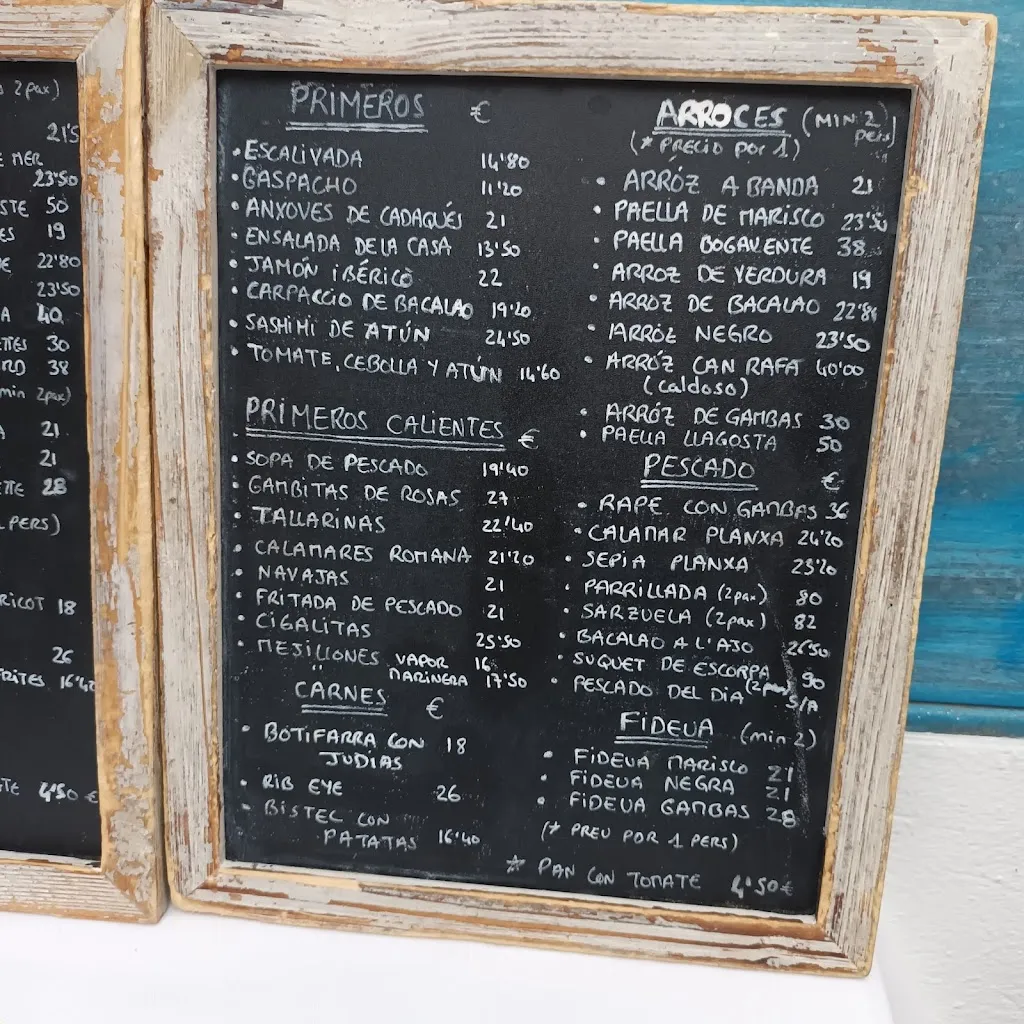 2pax)
21'5
E MER
23'50
STE 50
ES 19
E 22'80
23'50
A 40
TTES 30
RD 38
min 2pax)
A 21
21
ETTE 28
PERS)
RICOT 18
26
FRITES 16'40
TE 4'50 €
PRIMEROS €
• ESCALIVADA 14'80
• GASPACHO 11'20
• ANXOVES DE CADAQUÉS 21
• ENSALADA DE LA CASA 13'50
• JAMÓN IBÉRICO 22
• CARPACCIO DE BACALAO 19'20
• SASHIMI DE ATÚN 24'50
• TOMATE, CEBOLLA Y ATÚN 14'60
PRIMEROS CALIENTES €
• SOPA DE PESCADO 19'40
• GAMBITAS DE ROSAS 27
• TALLARINAS 22'40
• CALAMARES ROMANA 21'20
• NAVAJAS 21
• FRITADA DE PESCADO 21
• CIGALITAS 25'50
• MEJILLONES VAPOR 16
" MARINERA 17'50
CARNES €
• BOTIFARRA CON 18
JUDIAS
• RIB EYE 26
• BISTEC CON
PATATAS 16'40
ARROCES (MIN 2 pers)
(* PRECIO POR 1)
• ARRÓZ A BANDA 21
• PAELLA DE MARISCO 23'50
• PAELLA BOGAVENTE 38
• ARROZ DE VERDURA 19
• ARROZ DE BACALAO 22'80
• ARRÓZ NEGRO 23'50
• ARRÓZ CAN RAFA 40'00
(caldoso)
• ARRÓZ DE GAMBAS 30
• PAELLA LLAGOSTA 50
PESCADO €
• RAPE CON GAMBAS 36
• CALAMAR PLANXA 24'20
• SEPIA PLANXA 23'20
• PARRILLADA (2pax) 80
• SARZUELA (2pax) 82
• BACALAO A L'AJO 26'50
• SUQUET DE ESCORPA (2pax) 90
• PESCADO DEL DIA S/A
FIDEUA (min 2)
• FIDEUA MARISCO 21
• FIDEUA NEGRA 21
• FIDEUA GAMBAS 28
(* PREU POR 1 PERS)
* PAN CON TOMATE 4'50€